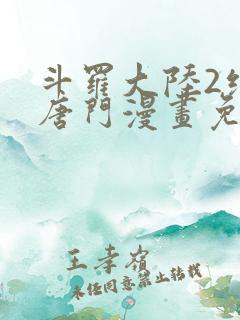 斗羅大陸2
唐門漫畫免
王孝嶺
未经同意禁止转载